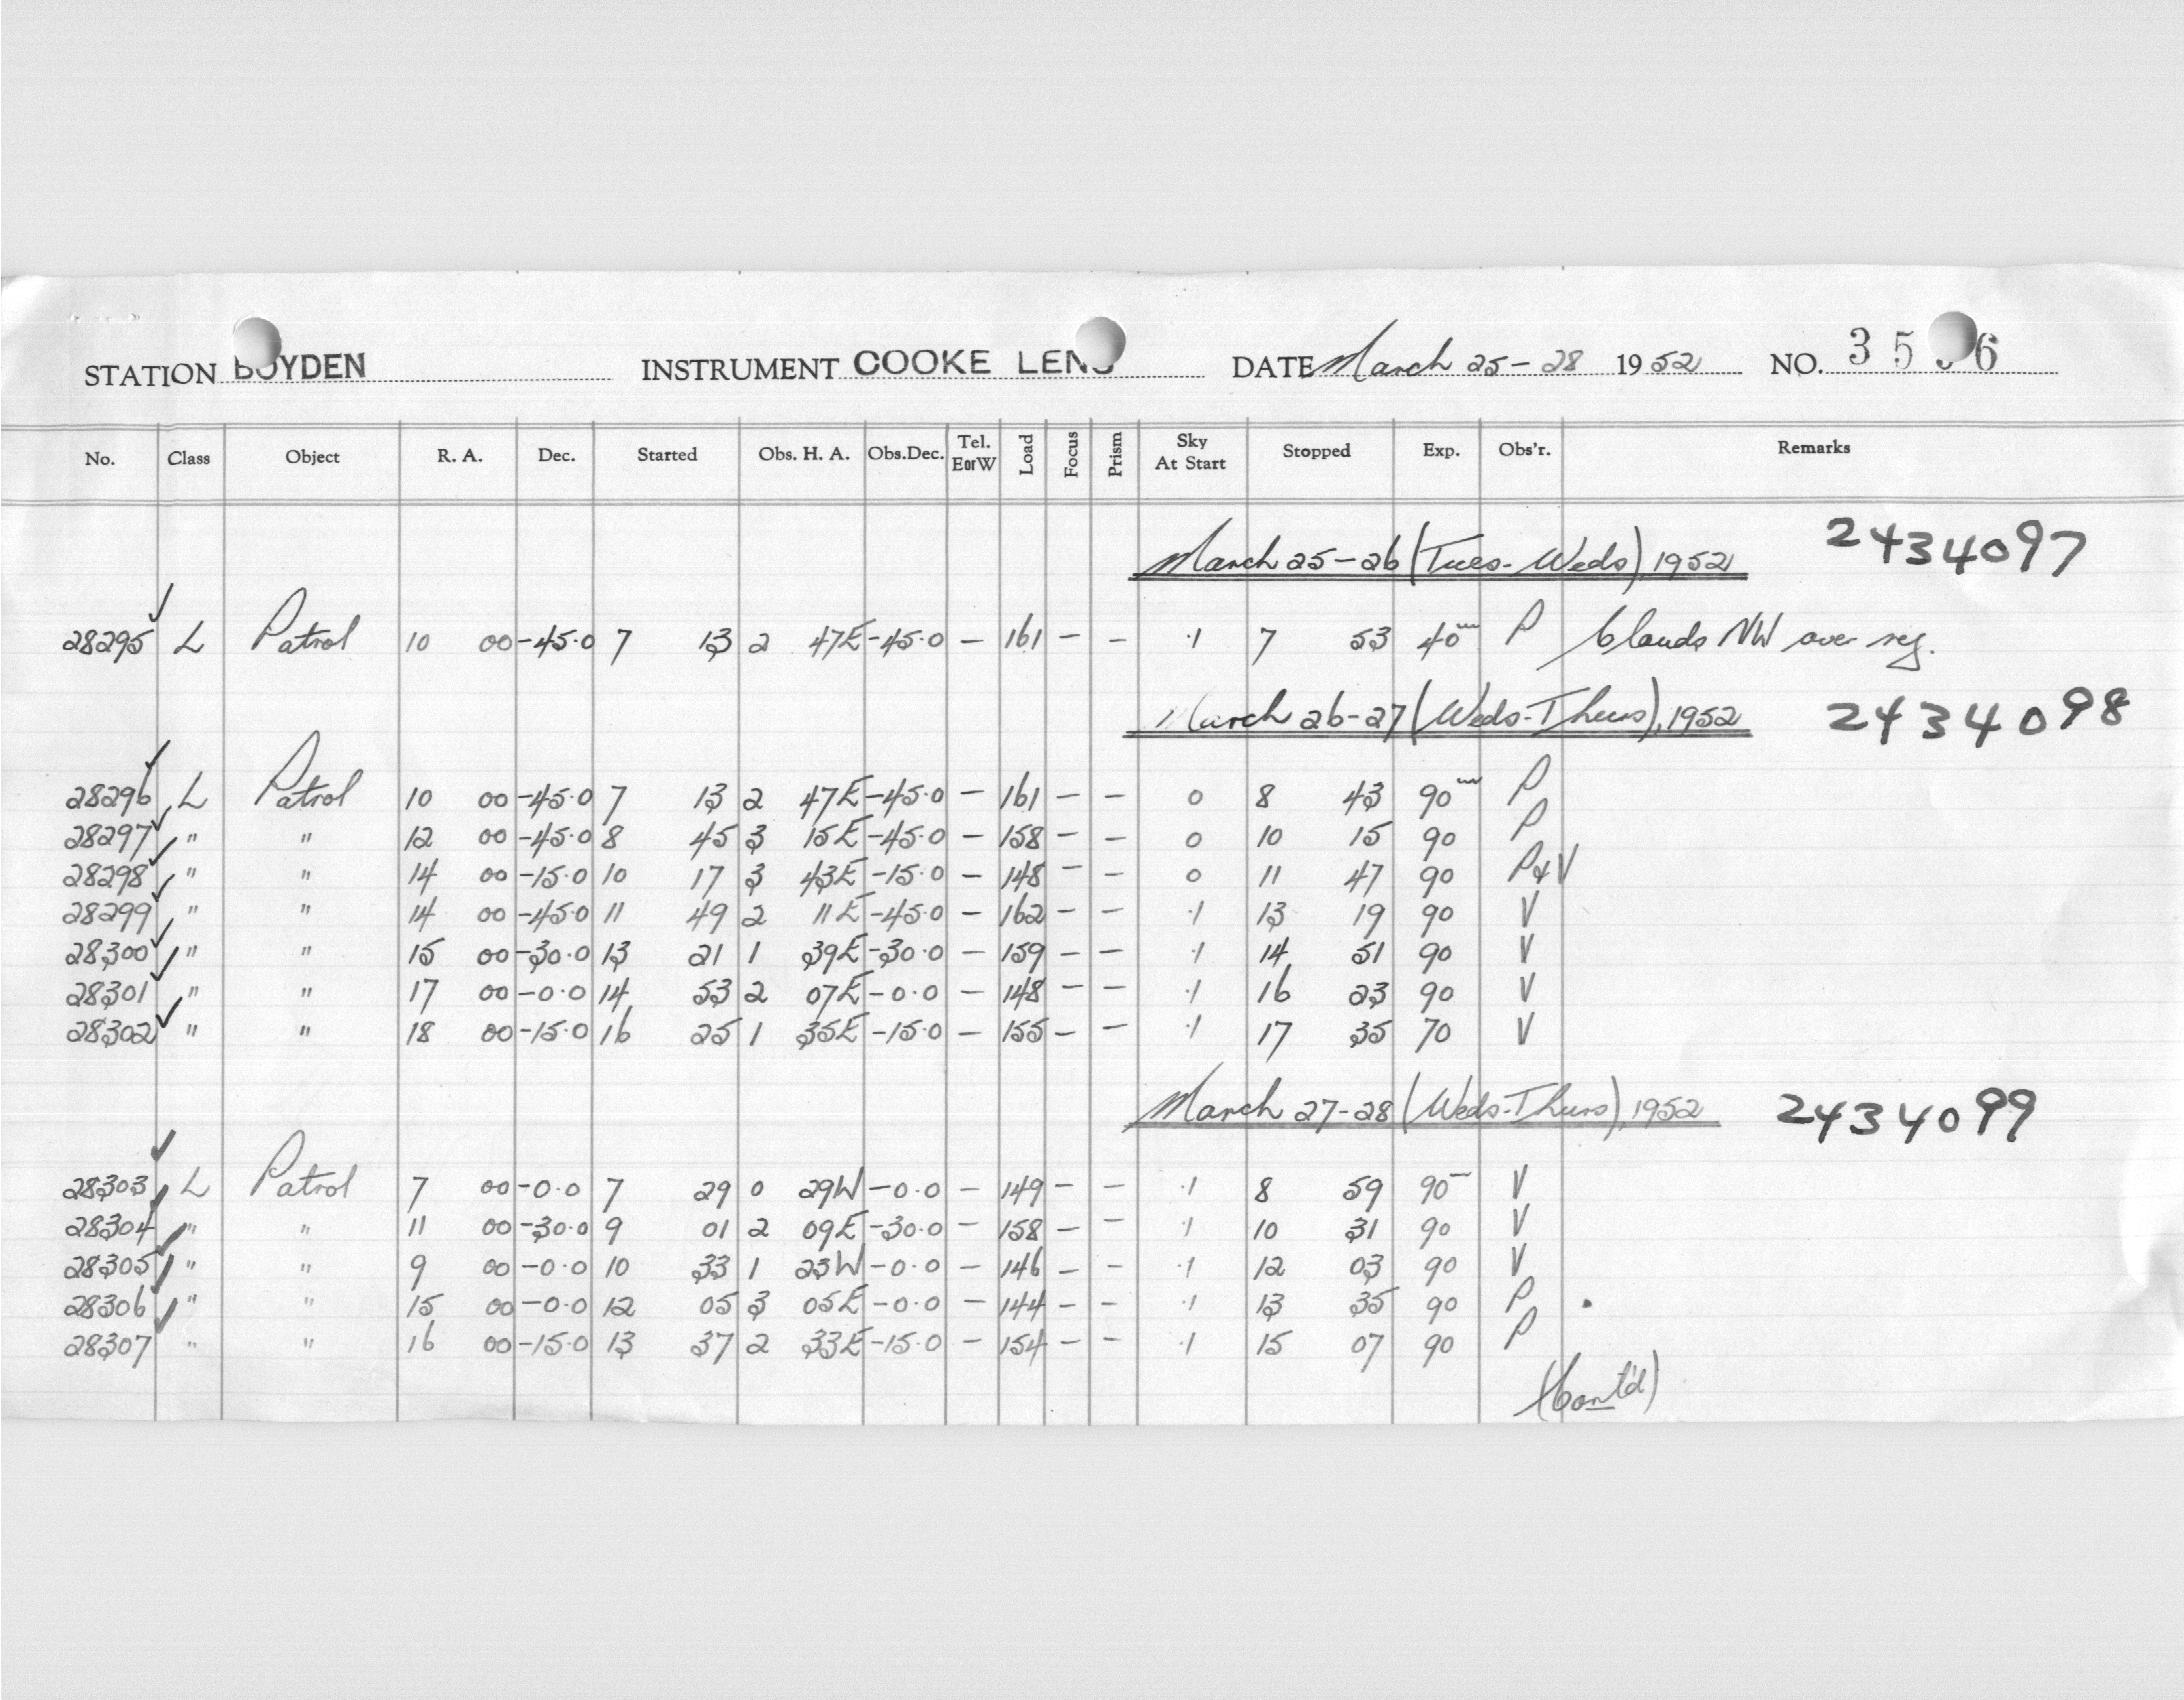 STATION BOYDEN INSTRUMENT COOKE LENS DATE March 25-28 1952 NO.
No. Class Object R. A. Dec. Started Obs. H. A. Obs.Dec. Tel. E or W Load Focus Prism Sky At Start Stopped Exp. Obs'r. Remarks
March 25-26 (Tues-Weds), 1952 2434097
28295 ✓ L Patrol 10 00 -45.0 7 13 2 47E -45.0 - 161 - - .1 7 53 40m P Clouds NW over reg.
March 26-27 (Weds-Thurs), 1952 2434098
28296 ✓ L Patrol 10 00 -45.0 7 13 2 47E -45.0 - 161 - - 0 8 43 90m P
28297 ✓ " " 12 00 -45.0 8 45 3 15E -45.0 - 158 - - 0 10 15 90 P
28298 ✓ " " 14 00 -15.0 10 17 3 43E -15.0 - 148 - - 0 11 47 90 P&V
28299 ✓ " " 14 00 -45.0 11 49 2 11E -45.0 - 162 - - .1 13 19 90 V
28300 ✓ " " 15 00 -30.0 13 21 1 39E -30.0 - 159 - - .1 14 51 90 V
28301 ✓ " " 17 00 -0.0 14 53 2 07E -0.0 - 148 - - .1 16 23 90 V
28302 ✓ " " 18 00 -15.0 16 25 1 35E -15.0 - 155 - - .1 17 35 70 V
March 27-28 (Weds-Thurs), 1952 2434099
28303 ✓ L Patrol 7 00 -0.0 7 29 0 29W -0.0 - 149 - - .1 8 59 90m V
28304 ✓ " " 11 00 -30.0 9 01 2 09E -30.0 - 158 - - .1 10 31 90 V
28305 ✓ " " 9 00 -0.0 10 33 1 23W -0.0 - 146 - - .1 12 03 90 V
28306 ✓ " " 15 00 -0.0 12 05 3 05E -0.0 - 144 - - .1 13 35 90 P
28307 ✓ " " 16 00 -15.0 13 37 2 33E -15.0 - 154 - - .1 15 07 90 P
(Cont'd)